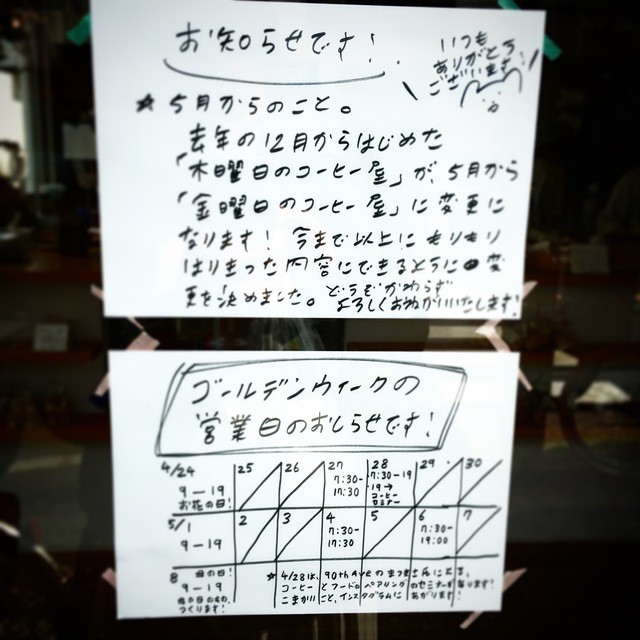 お知らせです!
いつも
ありがとう
ございます
☆ 5月からのこと。
去年の12月からはじめた
「木曜日のコーヒー屋」が、5月から
「金曜日のコーヒー屋」に変更に
なります! 今まで以上にもりもり
はりきった内容にできるように変
更を決めました。どうぞかわらず
よろしくおねがいいたします!
ゴールデンウィークの
営業日のおしらせです!
4/24 25 26 27 28 29 30
9-19 7:30-17:30 7:30-19
お花の日! 19→コーヒーセミナー
5/1 2 3 4 5 6 7
9-19 7:30-17:30 7:30-19:00
8 母の日!
9-19
母の日のもの、つくります!
☆ 4/28は、90th Aveのまつ さんによる、
コーヒーとフードのペアリングのセミナーが有ります!
こまかいこと、インスタグラムにあがります!